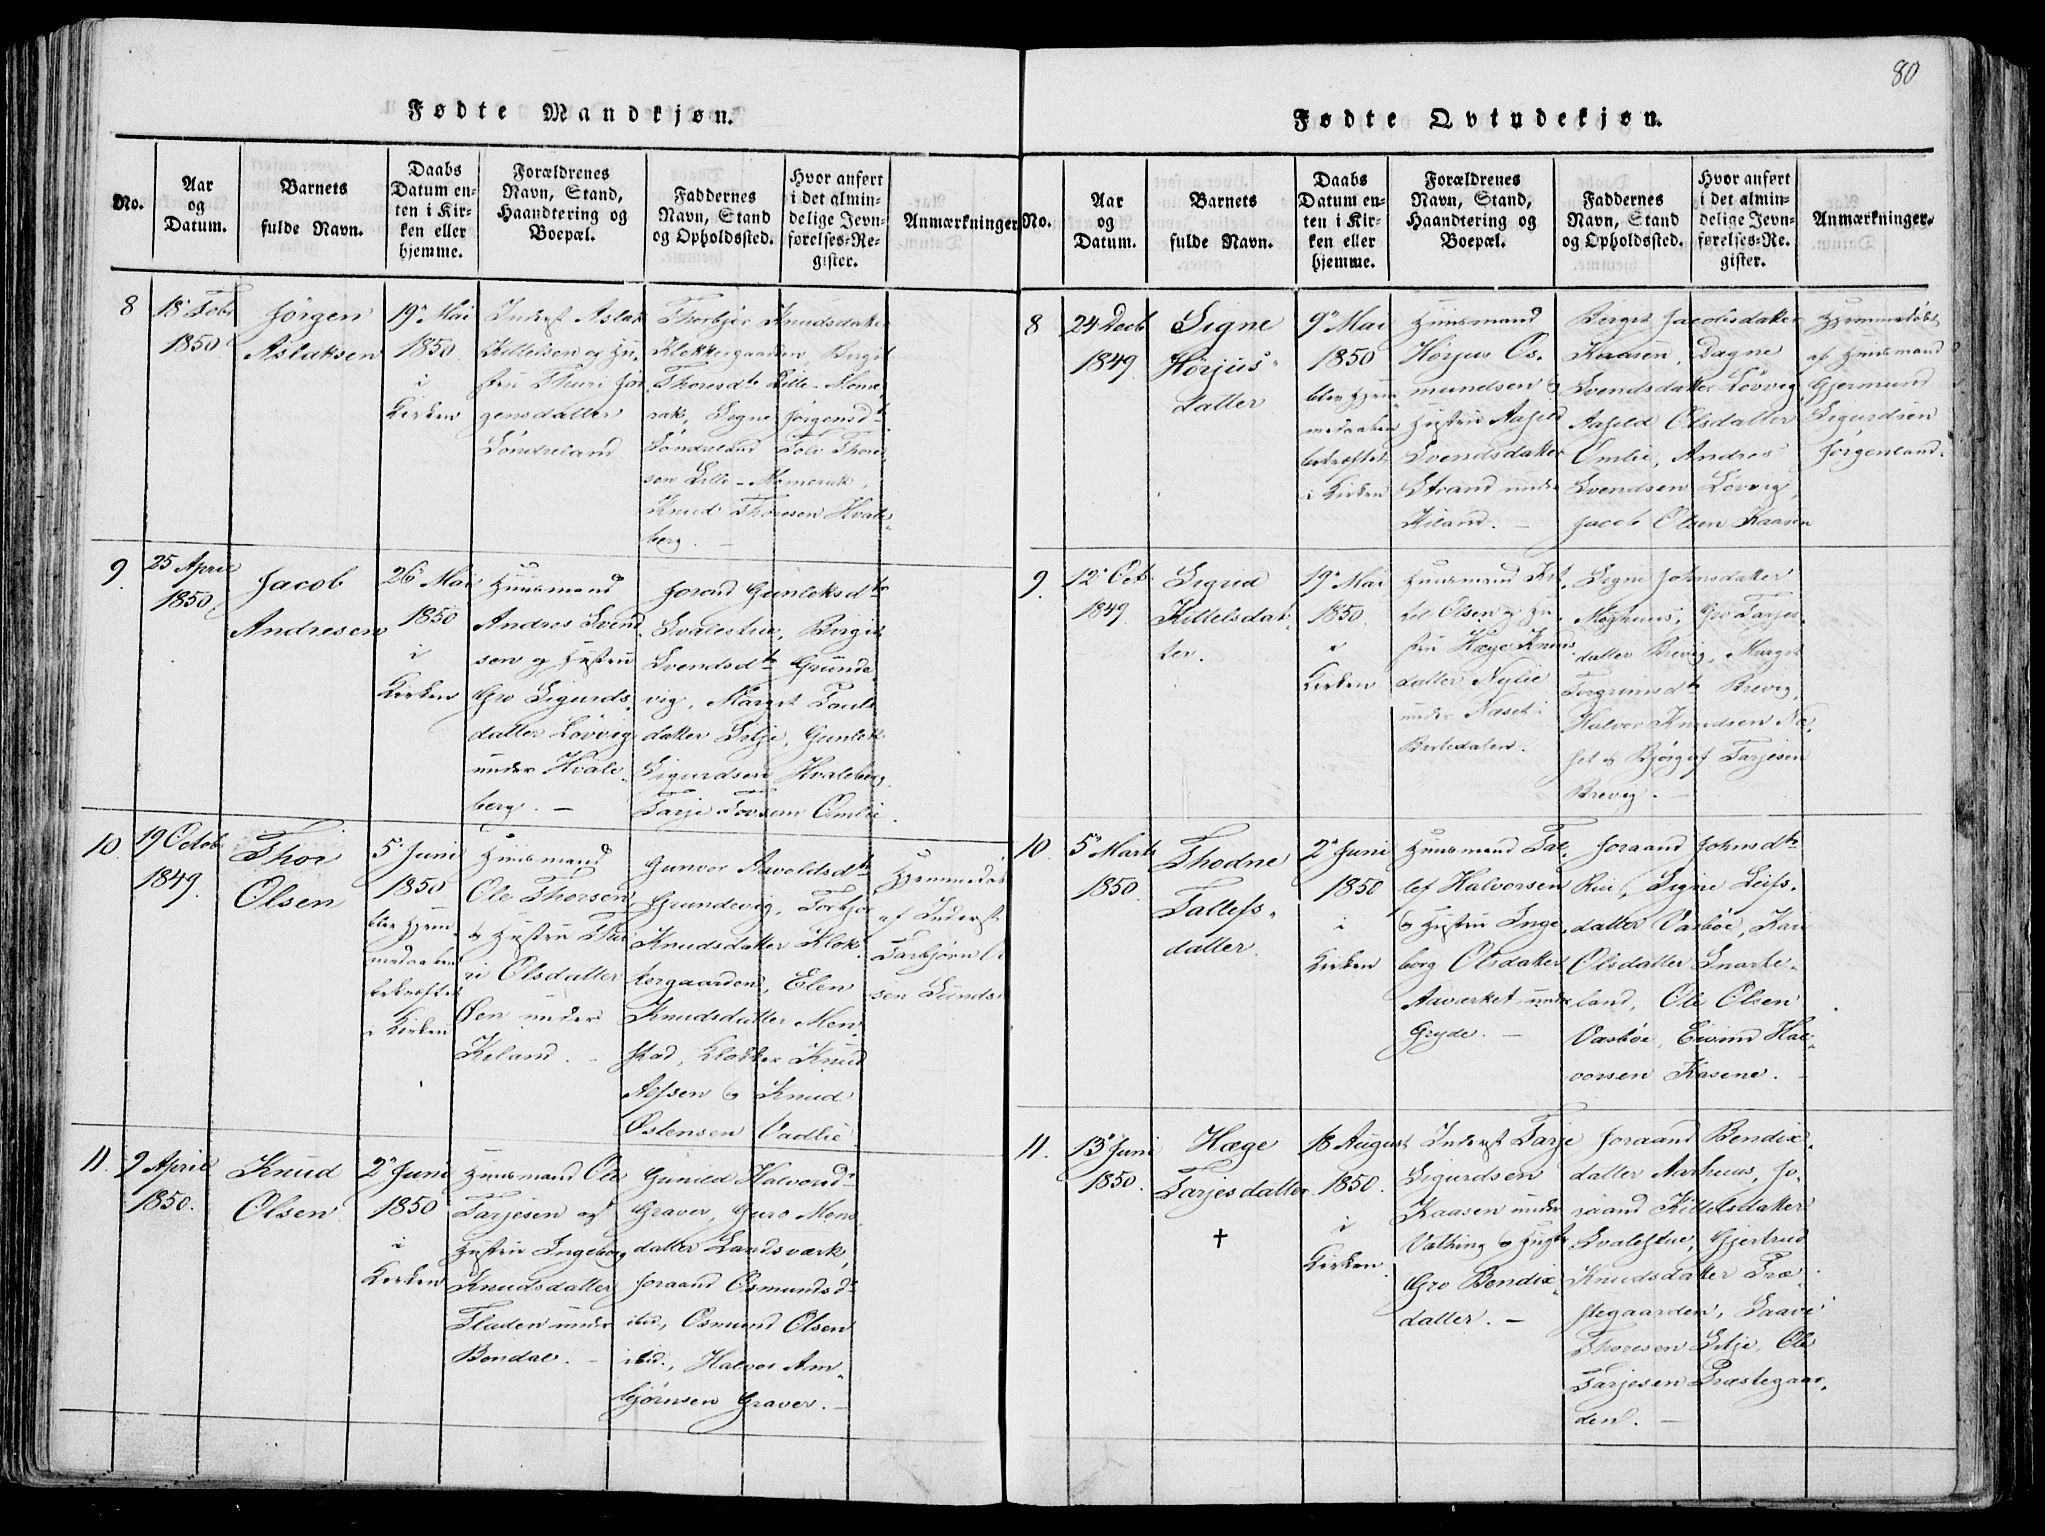 80
Fødte Mandkjøn.
No.
Aar
og
Datum.
Barnets
fulde Navn.
Daabs
Datum en-
ten i Kir-
ken eller
hjemme.
Forældrenes
Navn, Stand,
Haandtering og
Boepæl.
Faddernes
Navn, Stand
og Opholdssted.
Hvor anført
i det almin-
delige Jevn-
førelses-Re-
gister.
Anmærkninger
8
18 Febr
1850
Jørgen
Aslaksen
19 Mai
1850
i
Kirken
Inderst Aslak
Kittelsen og Hu-
stru Thuri Jør
gensdatter
Sondreland
Thorbjør Knudsdatter
Klokkergaarden, Bergit
Thoresdtr Lille-Nome
rak, Signe Jørgensdtr
Sondreland Tolv Thore
sen Lille-Nomerak,
Knud Thoresen Hvale
berg.
9
25 April
1850
Jacob
Andresen
26 Mai
1850
i
Kirken
Huusmand
Andres Svend
sen og Hustru
Gro Sigurds
datter Lövvig
under Hvale
berg. —
Jorond Gunleksdtr
Svalestue, Bergit
Svendsdtr Grunde
vig, Margit Pauls
datter Silje, Gunlek
Sigurdsen Hvaleberg
Tarje Tovsen Omlie.
10
19 Octobr
1849.
Thor
Olsen
5 Juni
1850
blev Hjem
medaaben
bekræftet
i Kirken
Huusmand
Ole Thorsen
og Hustru Thu
ri Olsdatter
Øen under
Kiland.
Gunvor Aavoldsdtr
Grundevig, Torbjør
Knudsdatter Klok
kergaarden, Elen
Knudsdatter Men
stad, Klokker Knud
Alfsen og Knud
Østensen Vadlie
Hjemmedöbt
af Inderst
Torbjørn
sen Lunds
11.
9 April
1850.
Knud
Olsen
2 Juni
1850
i
Kirken
Huusmand Ole
Tarjesen og
Hustru Ingeborg
Knudsdatter
Fladen under
Bondal. —
Gunild Halvorsdtr
Graver, Guro Mons
datter Landsværk,
Joraand Osmundsdtr
ibid, Osmund Olsen
ibid., Halvor Am
bjørnsen Graver. —
Fødte Qvindekjøn.
No.
Aar
og
Datum.
Barnets
fulde Navn.
Daabs
Datum en-
ten i Kir-
ken eller
hjemme.
Forældrenes
Navn, Stand,
Haandtering og
Boepæl.
Faddernes
Navn, Stand
og Opholdssted.
Hvor anført
i det almin-
delige Jevn-
førelses-Re-
gister.
Anmærkninger.
8
24 Decb
1849
Signe
Hörjus-
datter
9 Mai
1850
blev Hjem
medaaben
bekræftet
i Kirken
Huusmand
Hörjus Os-
mundsen og
Hustru Aasild
Svendsdatter
Strand under
Kiland. —
Bergit Jacobsdatter
Kaasen, Dagne
Svendsdatter Lövvig
Aasild Olsdatter
Omlie, Andres
Svendsen Lövvig,
Jacob Olsen Kaasen
Hjemmedöbt
af Huusmand
Gjermund
Sigurdsen
Jörgenland.
9.
12 Oct.
1849.
Sigrid
Kittelsdat-
ter.
19 Mai
1850.
i
Kirken
Huusmand Kit
tel Olsen og Hu-
stru Hæge Knuds
datter Nylie
under Naset i
Bertedalen.
Signe Johnsdatter
Moghuus, Gro Tarjes-
datter Brevig, Margit
Torgrimsdtr Brevig,
Halvor Knudsen Na-
set og Bjørgof Tarjesen
Brevig. —
10.
5 Marts
1850.
Thodne
Tallefs-
datter
2 Juni
1850
i
Kirken
Huusmand Tal-
lef Halvorsen
og Hustru Inge
borg Olsdatter
Aaværket under
Gryde. —
Joraand Johnsdtr
Rui, Signe Leifs-
datter Vasböe, Kari
Olsdatter Snarte-
land, Ole Olsen
Vasböe, Eivind Hal-
vorsen Kasene.
11.
13 Juni
1850.
Hæge
Tarjesdatter
✝
18 August
1850.
i
Kirken
Inderst Tarje
Sigurdsen
Kaasen under
Vathing og Hust
Gro Bendix
datter. —
Joraand Bendix
datter Aarhuus, Jo-
raand Kittelsdatter
Svalestue, Gjertrud
Knudsdatter Præ-
stegaarden, Saave
Thoresen Silje, Ole
Tarjesen Præstegaar-
den. —